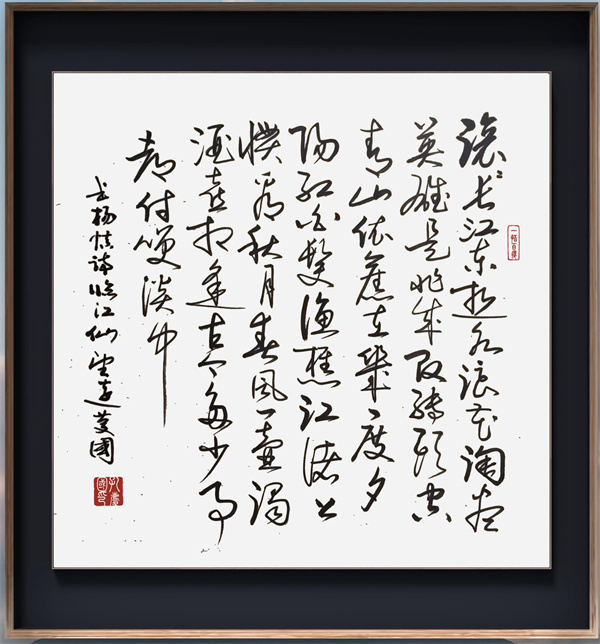 滚长江东逝水浪花淘尽
英雄是非成败转头空
青山依旧在几度夕
阳红白发渔樵江渚上
惯看秋月春风一壶浊
酒喜相逢古今多少事
都付笑谈中
书杨慎诗临江仙 慶國